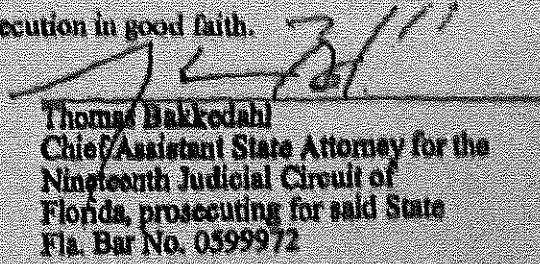 ecution in good faith.
Thomas Bakkedahl
Chief Assistant State Attorney for the
Nineteenth Judicial Circuit of
Florida, prosecuting for said State
Fla. Bar No. 0599972